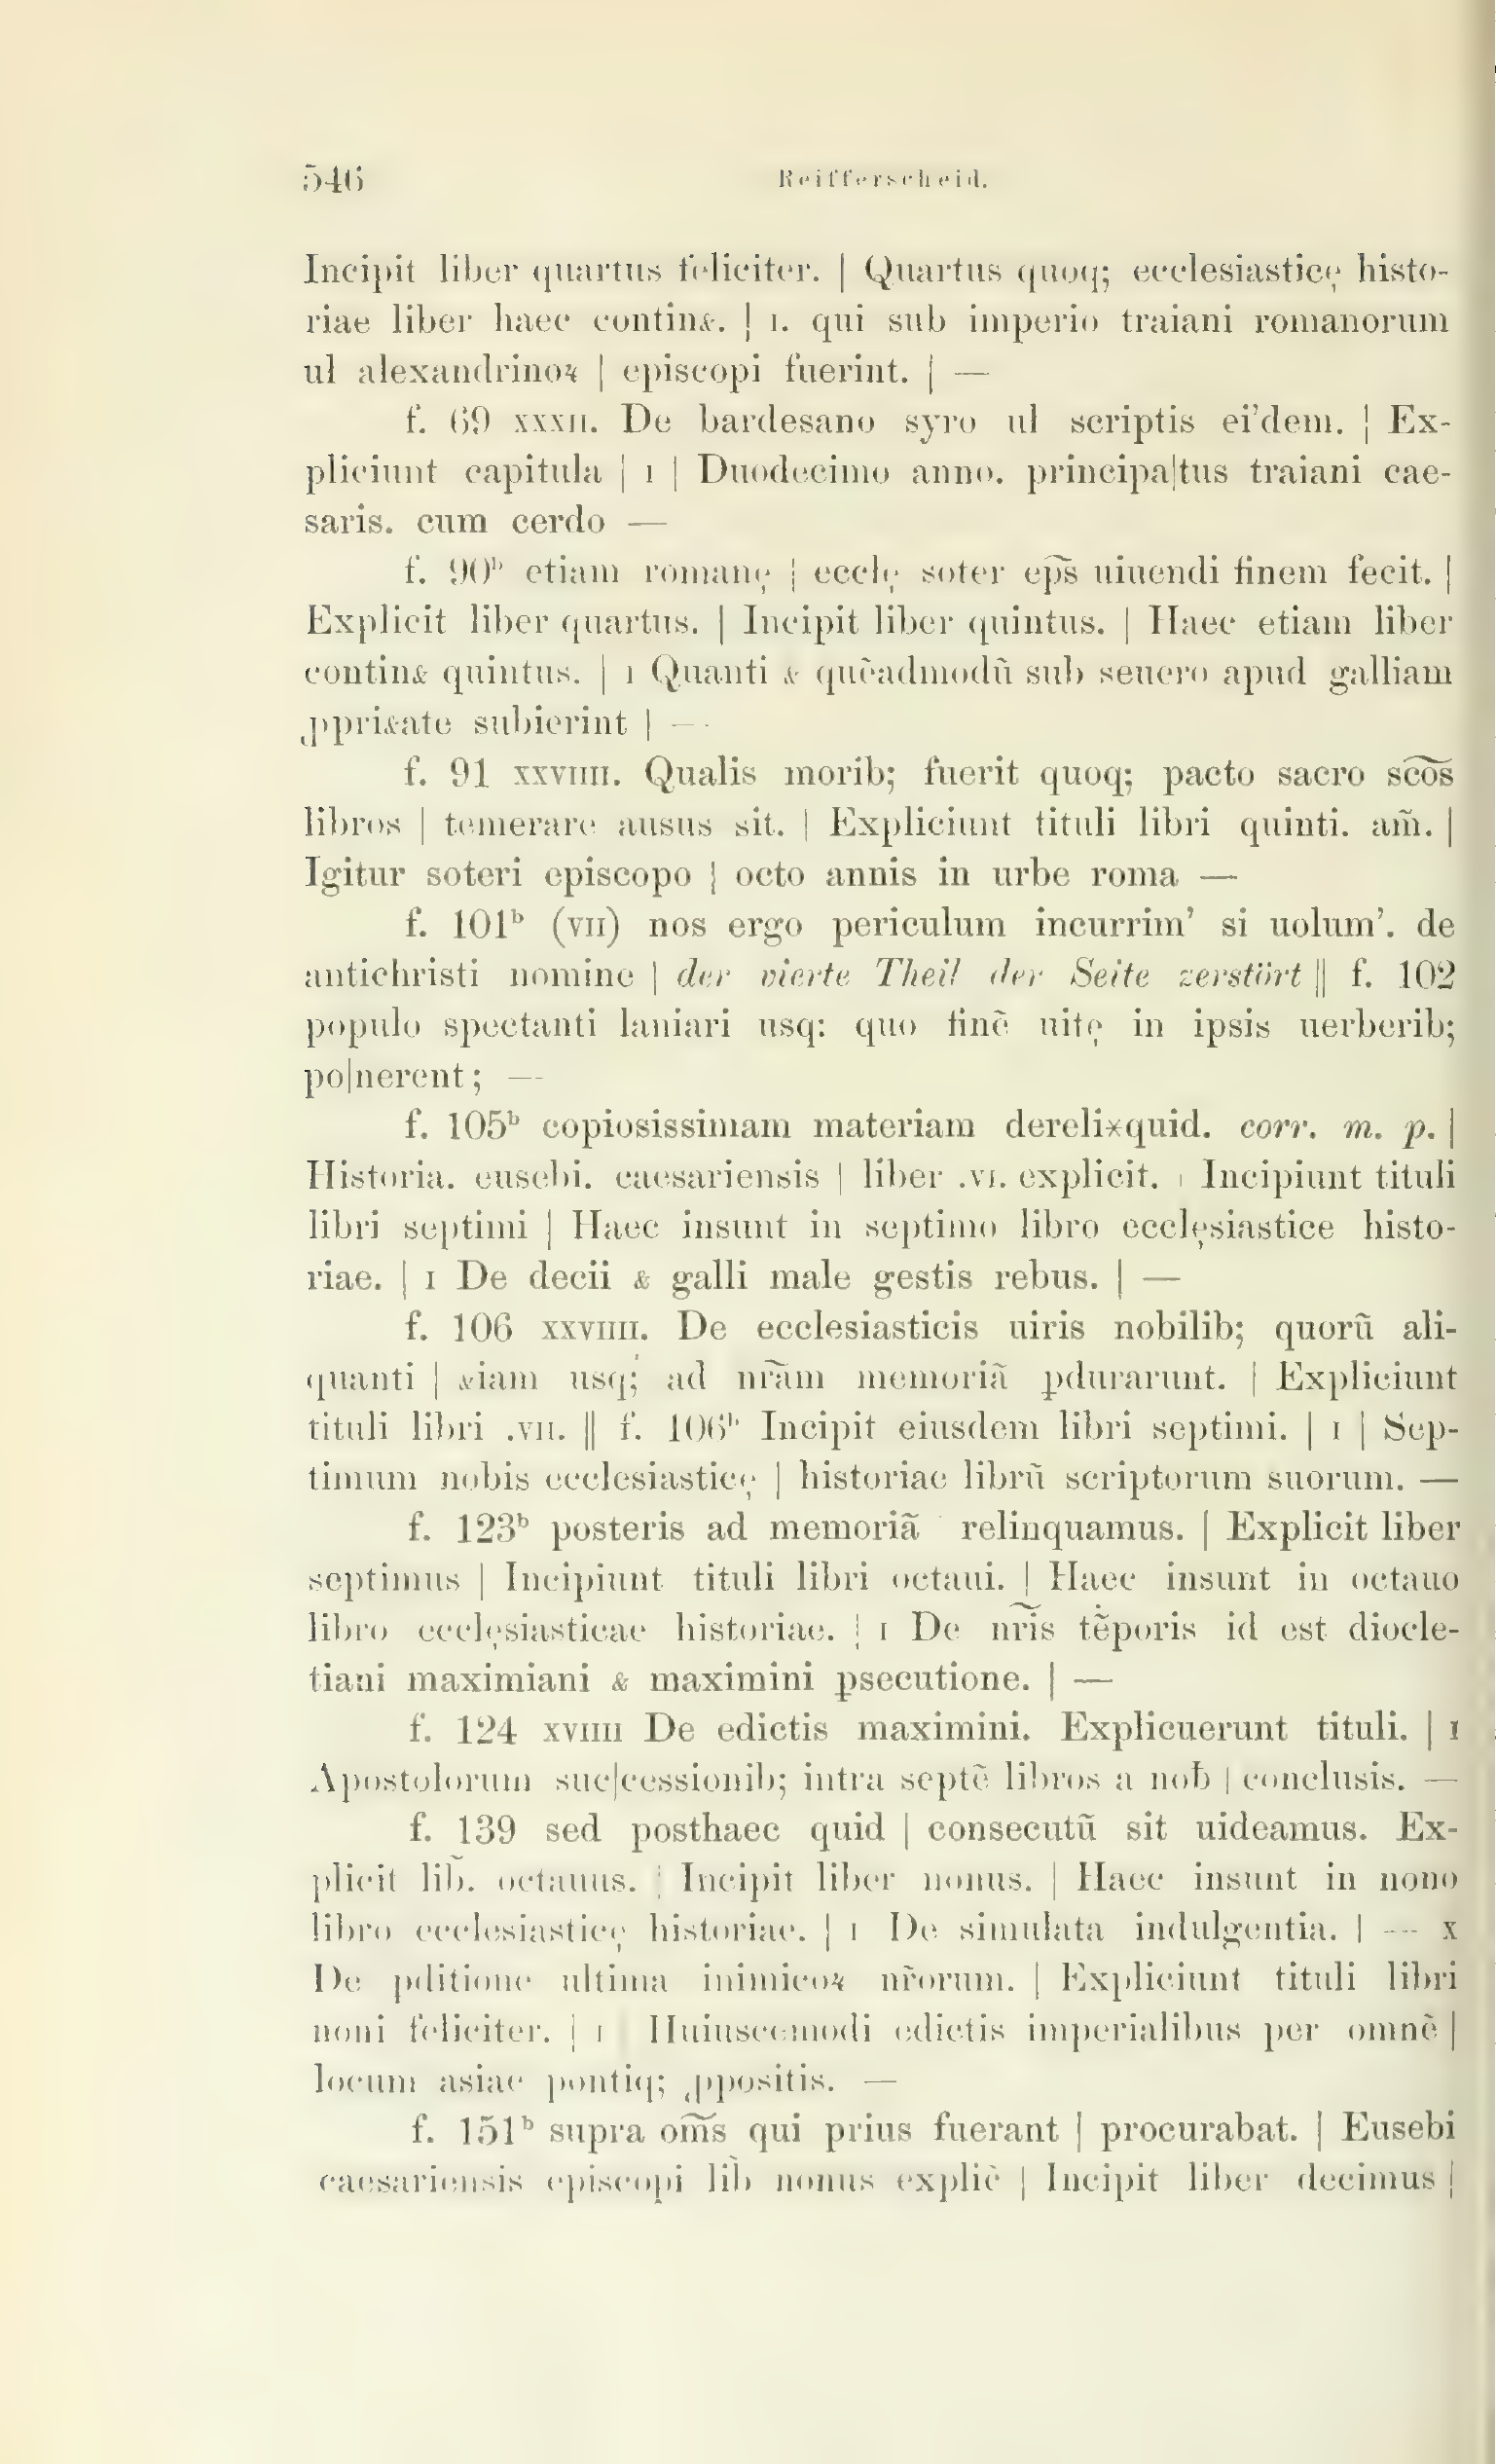 546 Reifferscheid.
Incipit liber quartus feliciter. | Quartus quoq; ecclesiasticę histo-
riae liber haec contin&. | I. qui sub imperio traiani romanorum
ul alexandrinoꝝ | episcopi fuerint. | —
f. 69 XXXII. De bardesano syro ul scriptis ei'dem. | Ex-
pliciunt capitula | I | Duodecimo anno. principa|tus traiani cae-
saris. cum cerdo —
f. 90ᵇ etiam romanę | ecclę soter ep̃s uiuendi finem fecit. |
Explicit liber quartus. | Incipit liber quintus. | Haec etiam liber
contin& quintus. | I Quanti & quẽadmodũ sub seuero apud galliam
ꝓpri&ate subierint | —
f. 91 XXVIIII. Qualis morib; fuerit quoq; pacto sacro sc̃õs
libros | temerare ausus sit. | Expliciunt tituli libri quinti. am̃. |
Igitur soteri episcopo | octo annis in urbe roma —
f. 101ᵇ (VII) nos ergo periculum incurrim' si uolum'. de
antichristi nomine | der vierte Theil der Seite zerstört || f. 102
populo spectanti laniari usq: quo finẽ uitę in ipsis uerberib;
po|nerent; —
f. 105ᵇ copiosissimam materiam dereli*quid. corr. m. p. |
Historia. eusebi. caesariensis | liber .VI. explicit. | Incipiunt tituli
libri septimi | Haec insunt in septimo libro ecclęsiastice histo-
riae. | I De decii & galli male gestis rebus. | —
f. 106 XXVIIII. De ecclesiasticis uiris nobilib; quorũ ali-
quanti | &iam usq; ad nr̃am memoriã ꝑdurarunt. | Expliciunt
tituli libri .VII. || f. 106ᵇ Incipit eiusdem libri septimi. | I | Sep-
timum nobis ecclesiasticę | historiae librũ scriptorum suorum. —
f. 123ᵇ posteris ad memoriã relinquamus. | Explicit liber
septimus | Incipiunt tituli libri octaui. | Haec insunt in octauo
libro ecclęsiasticae historiae. | I De nr̃is tẽporis id est diocle-
tiani maximiani & maximini ꝑsecutione. | —
f. 124 XVIIII De edictis maximini. Explicuerunt tituli. | I
Apostolorum suc|cessionib; intra septẽ libros a nob̄ | conclusis. —
f. 139 sed posthaec quid | consecutũ sit uideamus. Ex-
plicit lib̃. octauus. | Incipit liber nonus. | Haec insunt in nono
libro ecclesiasticę historiae. | I De simulata indulgentia. | — X
De ꝑditione ultima inimicoꝝ nr̃orum. | Expliciunt tituli libri
noni feliciter. | I Huiuscemodi edictis imperialibus per omnẽ |
locum asiae pontiq; ꝓpositis. —
f. 151ᵇ supra om̃s qui prius fuerant | procurabat. | Eusebi
caesariensis episcopi lib̀ nonus explic̀ | Incipit liber decimus |